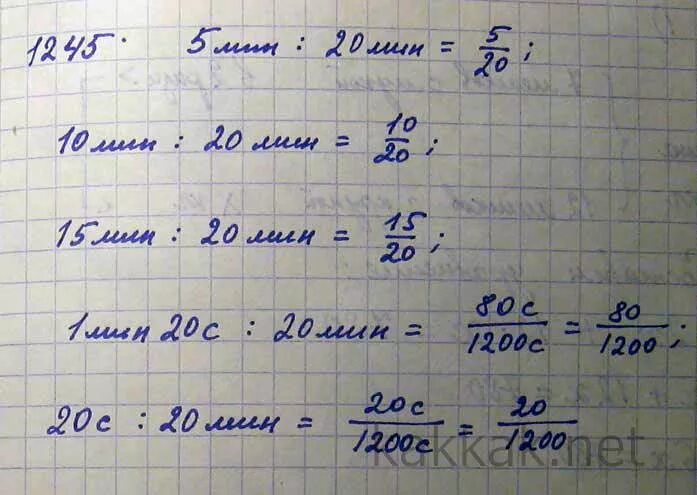 1245. 5 мин : 20 мин = 5/20 ;
10 мин : 20 мин = 10/20 ;
15 мин : 20 мин = 15/20 ;
1 мин 20 с : 20 мин = 80 с/1200 с = 80/1200 ;
20 с : 20 мин = 20 с/1200 с = 20/1200
kakkak.net